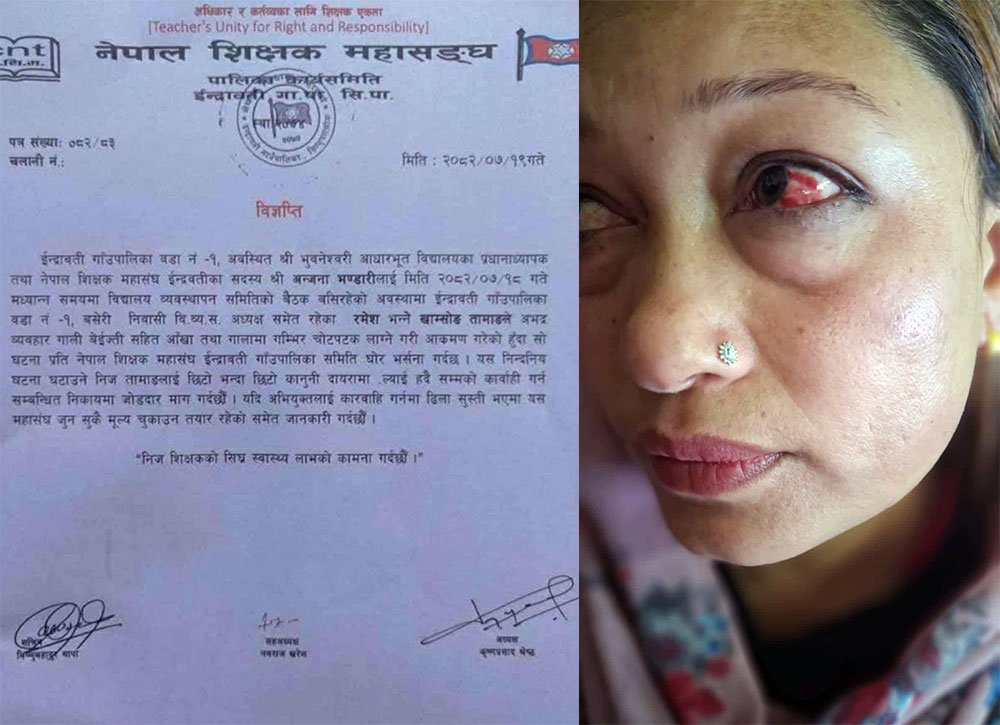 अधिकार र कर्तव्यका लागि शिक्षक एकता
[Teacher's Unity for Right and Responsibility]
नेपाल शिक्षक महासङ्घ
पालिका कार्यसमिति
ईन्द्रावती गा.पा. सि.पा.
पत्र संख्या: ०८२/८३
चलानी नं.:
मिति : २०८२/०७/१९गते
विज्ञप्ति
ईन्द्रावती गाँउपालिका वडा नं -१, अवस्थित श्री भुवनेश्वरी आधारभूत विद्यालयका प्रधानाध्यापक
तथा नेपाल शिक्षक महासंघ ईन्द्रवतीका सदस्य श्री अन्जना भण्डारीलाई मिति २०८२/०७/१८ गते
मध्यान्न समयमा विद्यालय व्यवस्थापन समितिको बैठक बसिरहेको अवस्थामा ईन्द्रावती गाँउपालिका
वडा नं -१, बसेरी निवासी वि.व्य.स. अध्यक्ष समेत रहेका रमेश भन्ने खाम्सोङ तामाङले अभद्र
व्यवहार गाली बेईज्ती सहित आँखा तथा गालामा गम्भिर चोटपटक लाग्ने गरी आक्रमण गरेको हुँदा सो
घटना प्रति नेपाल शिक्षक महासंघ ईन्द्रावती गाँउपालिका समिति घोर भर्सना गर्दछ । यस निन्दनिय
घटना घटाउने निज तामाङलाई छिटो भन्दा छिटो कानुनी दायरामा ल्याई हदै सम्मको कार्वाही गर्न
सम्बन्धित निकायमा जोडदार माग गर्दछौँ । यदि अभियुक्तलाई कारवाहि गर्नमा ढिला सुस्ती भएमा यस
महासंघ जुन सुकै मूल्य चुकाउन तयार रहेको समेत जानकारी गर्दछौँ ।
"निज शिक्षकको सिघ्र स्वास्थ्य लाभको कामना गर्दछौँ ।"
सचिव
विष्णुबहादुर थापा
सहअध्यक्ष
नवराज खरेल
अध्यक्ष
कृष्णप्रसाद श्रेष्ठ